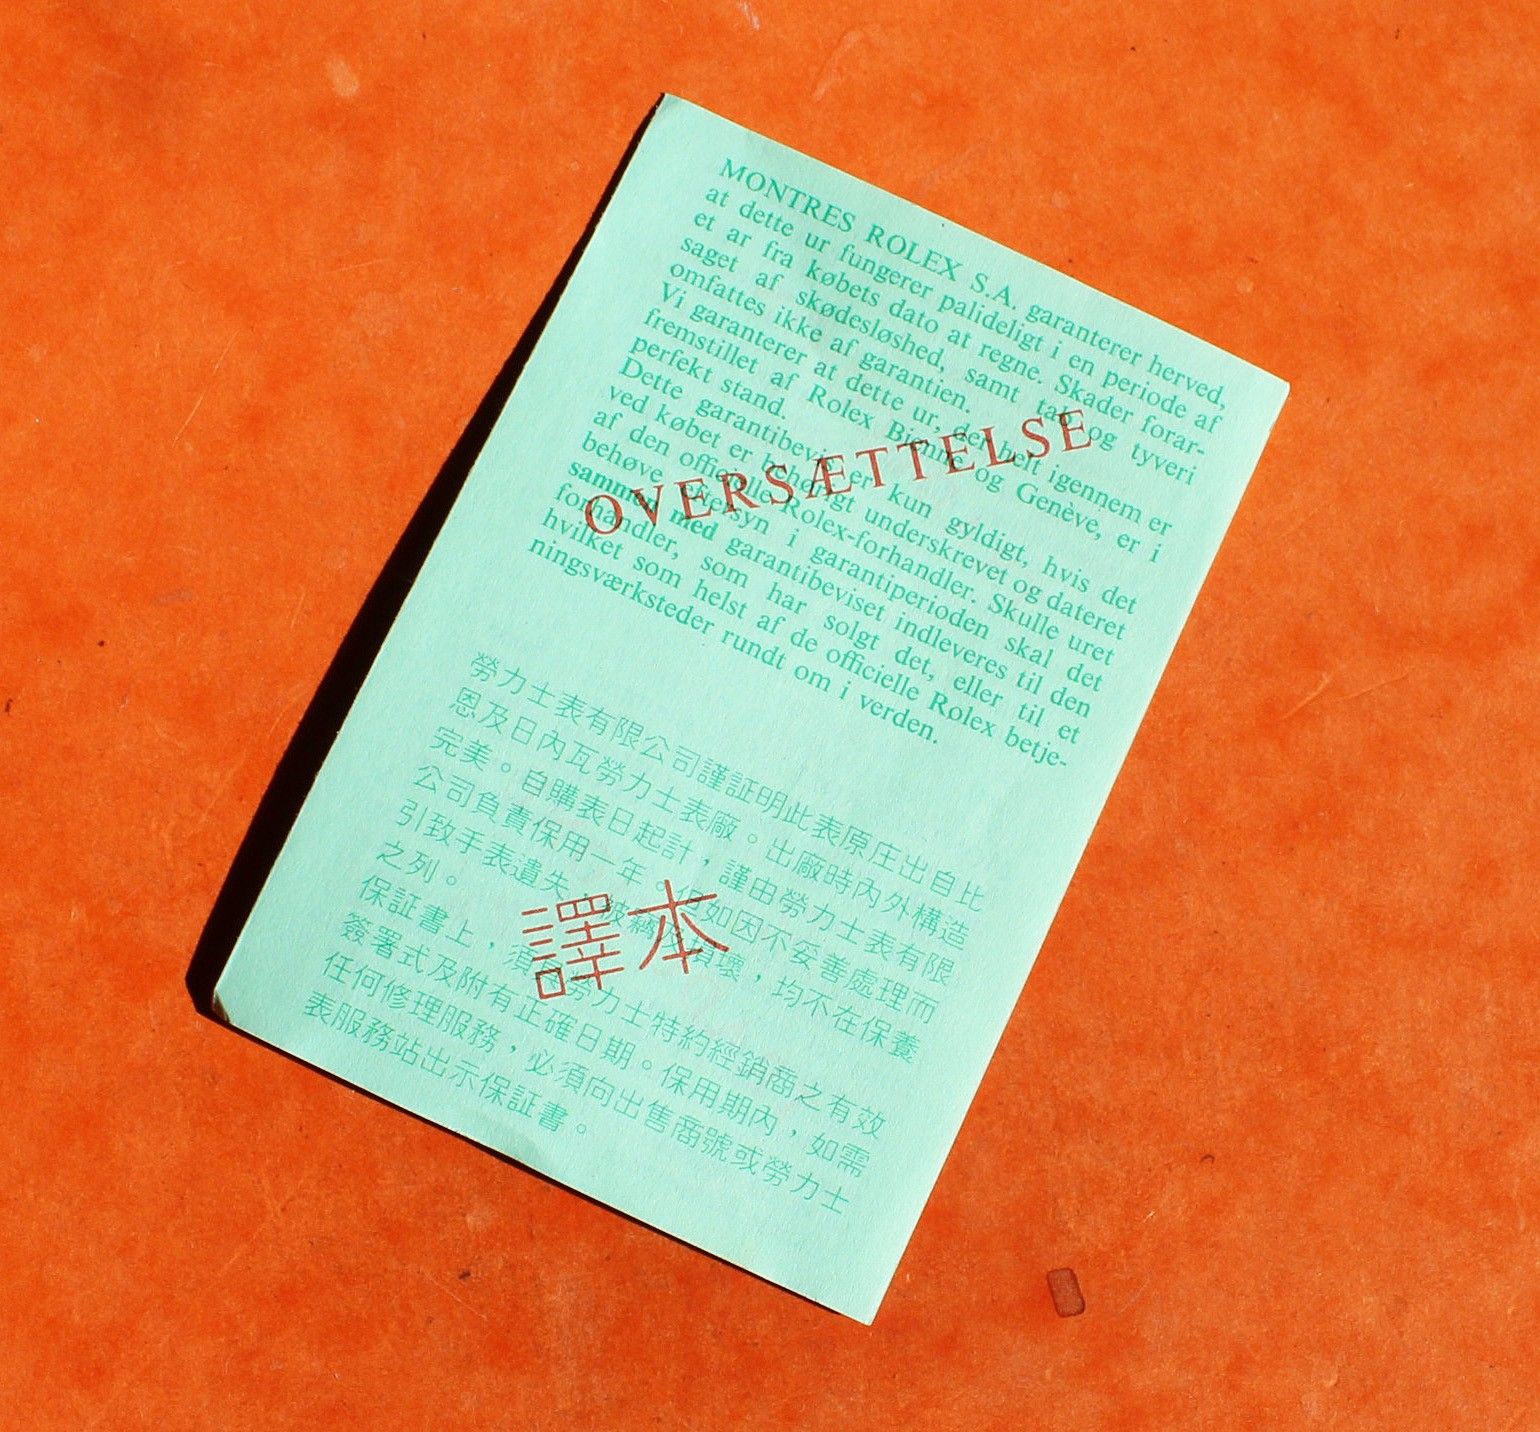 MONTRES ROLEX S.A. garanterer herved,
at dette ur fungerer palideligt i en periode af
et ar fra købets dato at regne. Skader forar-
saget af skødesløshed, samt tab og tyveri
omfattes ikke af garantien.
Vi garanterer at dette ur, der helt igennem er
fremstillet af Rolex Bienne og Genève, er i
perfekt stand.
Dette garantibevis er kun gyldigt, hvis det
ved købet er behørigt underskrevet og dateret
af den officielle Rolex-forhandler. Skulle uret
behøve eftersyn i garantiperioden skal det
sammen med garantibeviset indleveres til den
forhandler, som har solgt det, eller til et
hvilket som helst af de officielle Rolex betje-
ningsværksteder rundt om i verden.
OVERSÆTTELSE
勞力士表有限公司謹証明此表原庄出自比
恩及日內瓦勞力士表廠。出廠時內外構造
完美。自購表日起計，謹由勞力士表有限
公司負責保用一年。但如因不妥善處理而
引致手表遺失，被竊及損壞，均不在保養
之列。
保証書上，須有勞力士特約經銷商之有效
簽署式及附有正確日期。保用期內，如需
任何修理服務，必須向出售商號或勞力士
表服務站出示保証書。
譯本